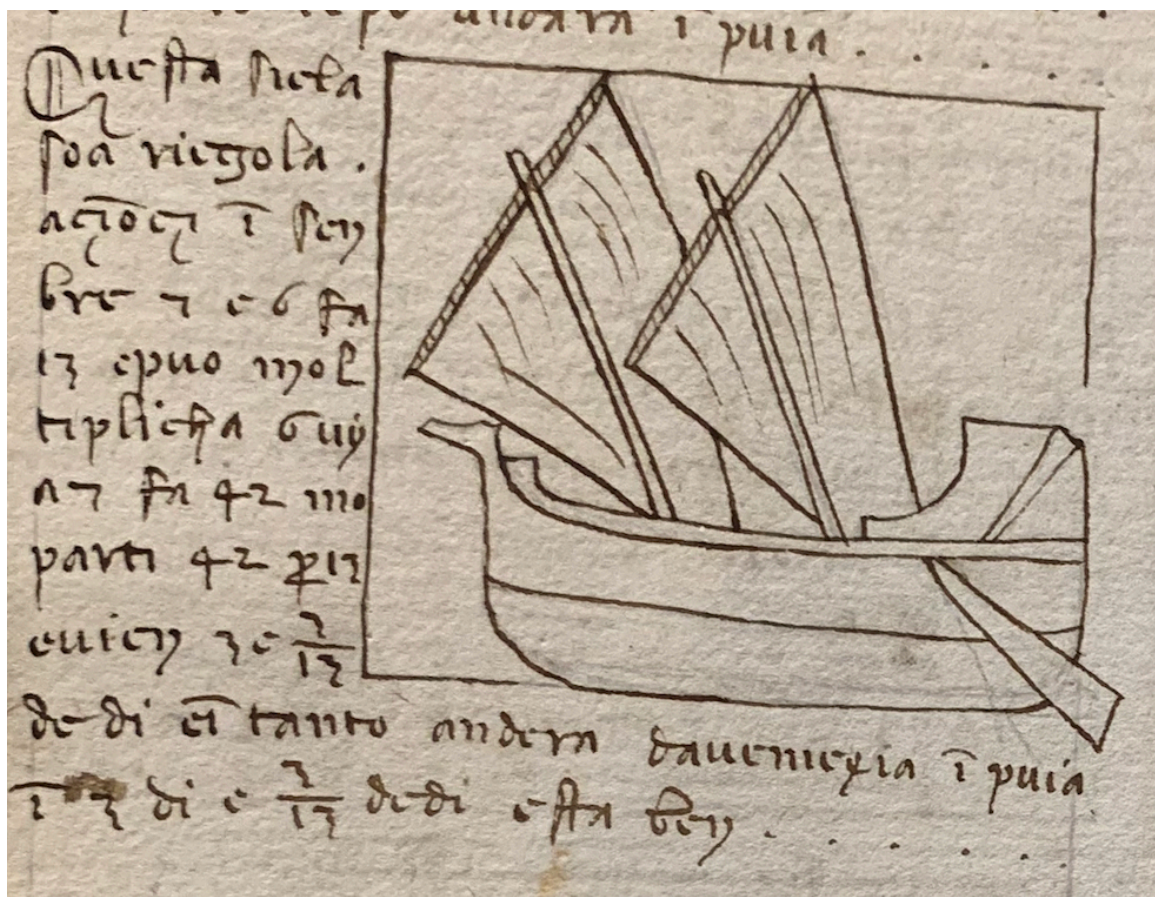 andara ī puia . . . .
Questa sie la
soa riegola .
azōcħ ī sen
bre 7 e 6 fa
13 epuo mol
tiplicha 6 uij
a 7 fa 42 mo
parti 42 ꝑ 13
euien 3 e 3/13
de di eī tanto andera daueniexia ī puia
ī 3 di e 3/13 dedi e sta ben . . . . .